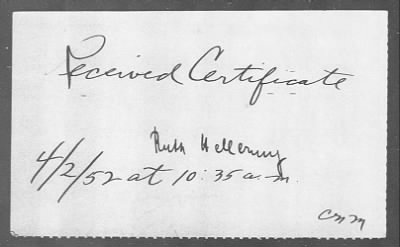 Received Certificate
Ruth Hellernuy
4/2/52 at 10:35 a.m.
cmm